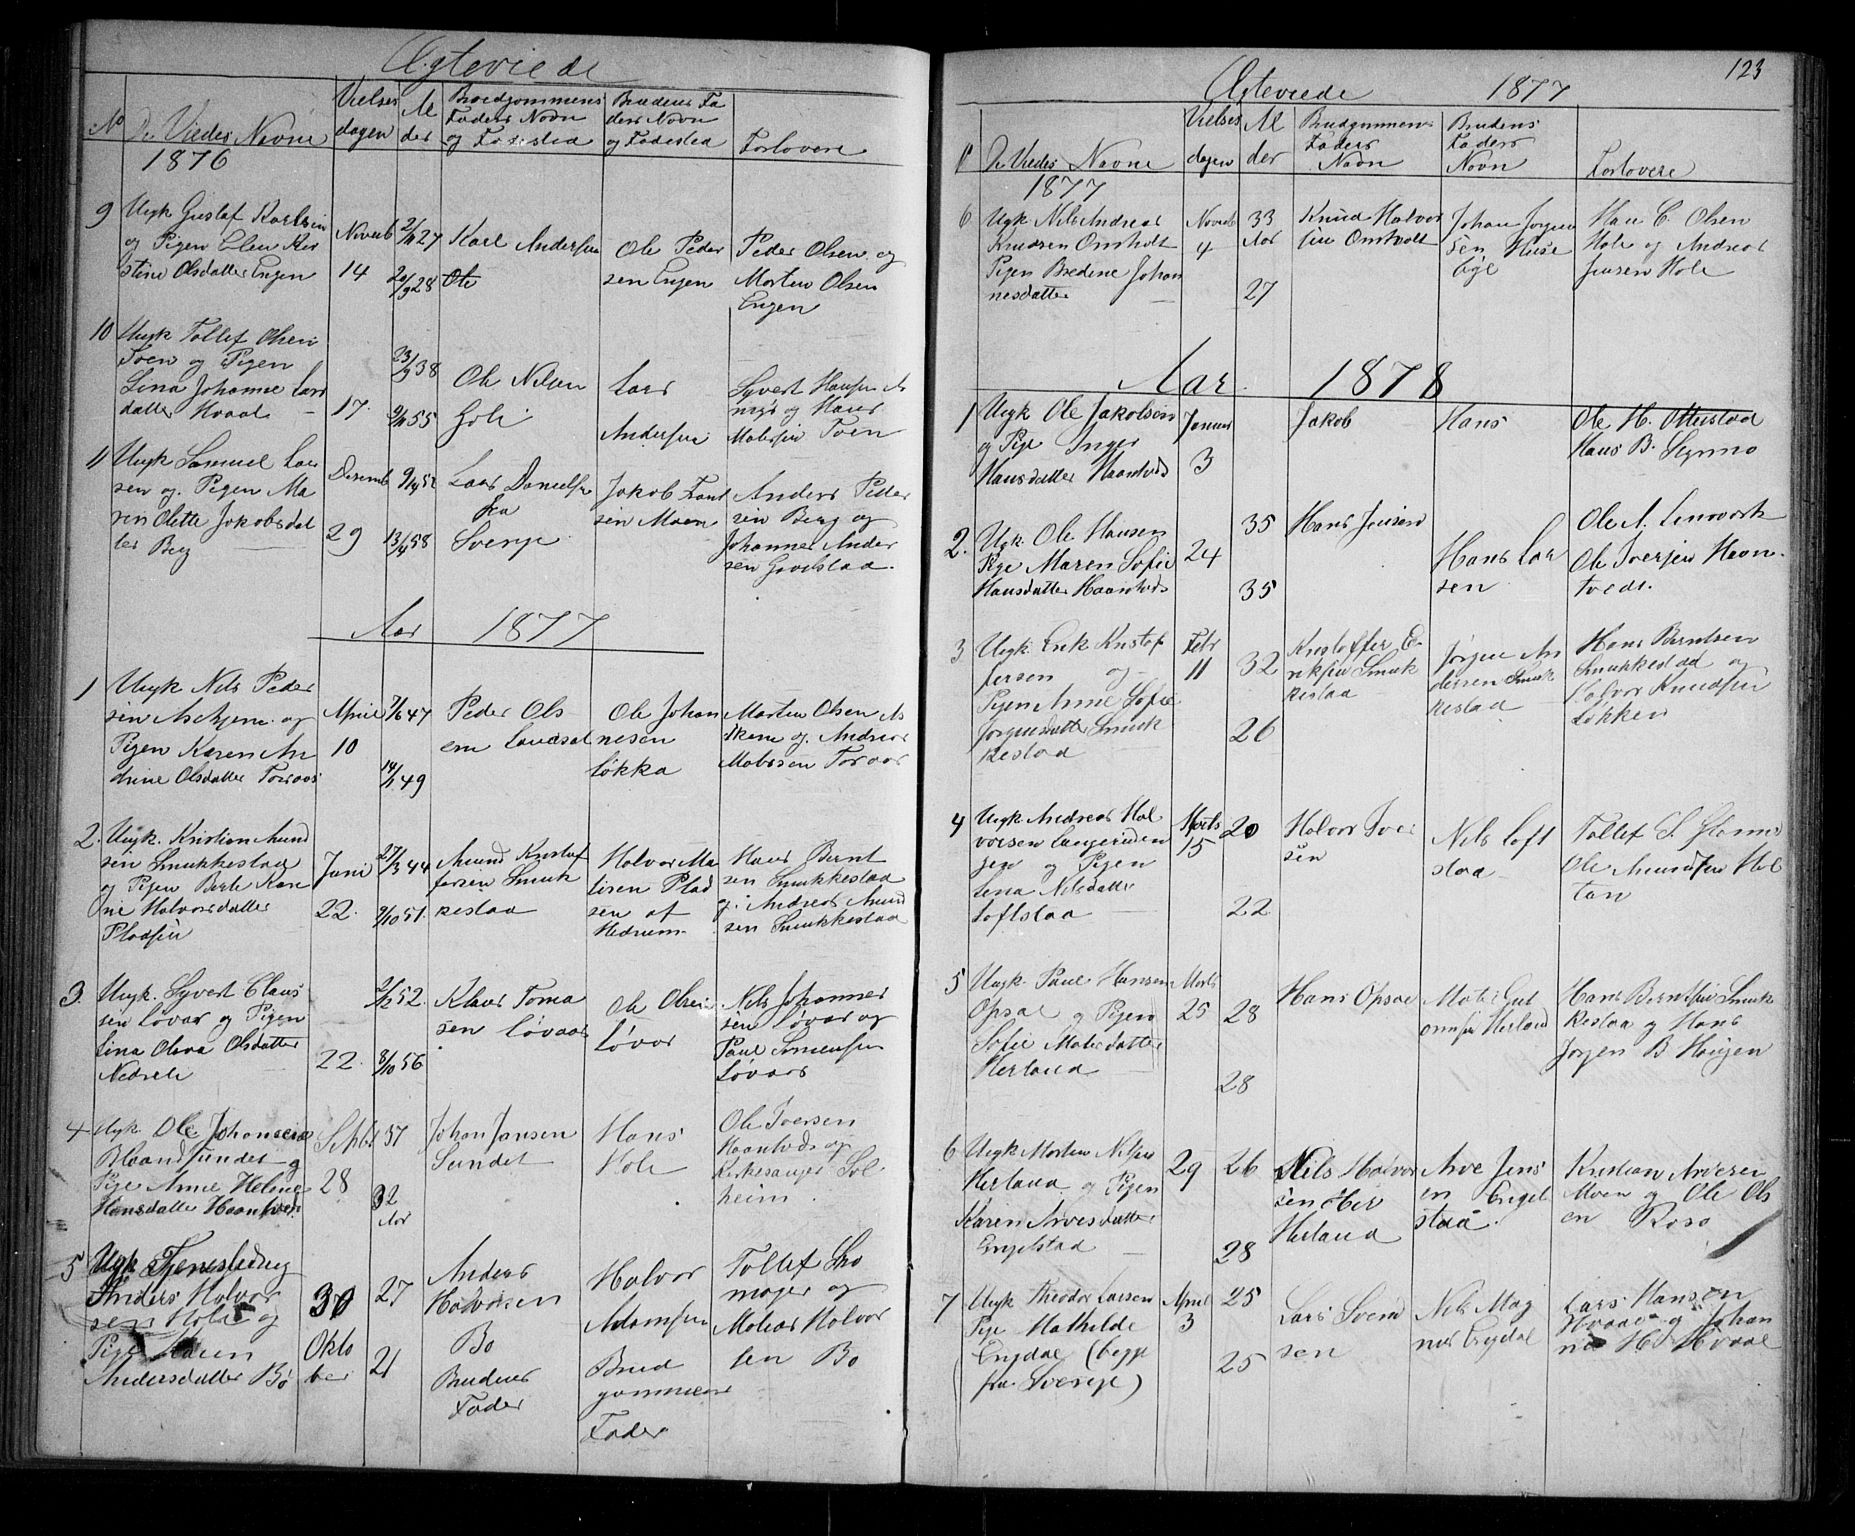 Ægteviede
No
De Viedes Navne
Vielses
dagen
Al
der
Brudgommens
Faders Navn
og Fødested
Brudens Fa
ders Navn
og Fødested
Forlovere
1876
9
Ungk Gustaf Karlsen
og Pigen Elen Kir
stine Olsdatter Engen
Novemb
14
27
28
Karl Andersen
Ole
Ole Peder
sen Engen
Peder Olsen og
Morten Olsen
Engen
10
Ungk Tollef Olsen
Toen og Pigen
Lina Johanne Lars
datter Hvaal
17.
38
55
Ole Nilsen
Lars
Andersen
Syvert Hansen
og Hans
Toen
11
Ungk Samuel Lar
sen og Pigen Ma
ren Olette Jakobsdat
ter Berg
Desemb
29
13/4 58
Lars Danielsen
fra
Sverige
Jakob
sen Moen
Anders Peder
sen Berg og
Johannes Ander
sen
Aar 1877
1
Ungk Nils Peder
sen Askjem og
Pigen Karen An
drine Olsdatter
April
10
7/6 47
49
Peder Ols
en
Ole Johan
nesen
Løkka
Morten Olsen As
kjem og Andreas
2.
Ungk. Kristian Amund
sen Smukkestad
og Pigen Berte Kar
ine Halvorsdatter
Juni
22.
27/3 44
9/10 51.
Amund Kristof
fersen Smuk
kestad
Halvor Ma
tisen Plad
sen af
Hedrum
Hans Bernt
sen Smukkestad
og Andreas Amund
sen Smukkestad
3.
Ungk. Syvert Claus
sen Løvar og Pigen
Lina Olava Olsdatter
22.
2/2 52.
8/10 56
Klaus Toma
sen Løvaas
Ole Olsen
Løvar
Nils Johannes
sen Løvar og
Paul Simensen
Løvaas
4
Ungk. Ole Johansen
og
Pige Anne Helene
Hansdatter Haantved
Septb
28
37
32
Aar
Johan Jansen
Sundet
Hans
Hole
Ole Iversen
Haantveds og
Kirkesanger Sol
heim
5
Ungk
Anders Halvor
sen Hole og
Pige
Andersdatter Bø
30
Okto
ber
27
21
Anders
Halvorsen
Bø
Brudens
Fader
Halvor
Adamsen
Brud
gommens
Fader
Tollef
og
Matias Halvor
sen Bø
Ægteviede 1877
123
De Viedes Navne
Vielses
dagen
Al
der
Brudgommens
Faders
Navn
Brudens
Faders
Navn
Forlovere
1877
6
Ungk Nils Andreas
Knudsen Omholt
Pigen Bredine Johan
nesdatter
Novemb
4
33
Aar
27
Knud Halvor
sen Omholdt
Johan Jørgen
sen Huse
bye
Hans C. Olsen
Hole og Andreas
Jensen Hole
Aar 1878
1
Ungk Ole Jakobsen
og Pige Inger
Hansdatter Haantveds
Januar
3
Jakob
Hans
Ole H. Ottestad
Hans B.
2.
Ungk. Ole Hansen
Pige Maren Sofie
Hansdatter Haantveds
24
35
35
Hans Jensen
Hans Lar
sen
Ole A.
Ole Iversen Haan
tvedt.
3
Ungk. Erik Kristof
fersen og
Pigen Anne Sofie
Jørgensdatter Smuk
kestad
Febr
11
32
26
Kristoffer E
riksen Smuk
kestad
Jørgen An
dersen Smuk
kestad
Hans Berntsen
Smukkestad og
Halvor Knudsen
Løkken
4
Ungk Andreas Hal
vorsen
og Pigen
Lena Nilsdatter
Loftstad
Marts
15
20
22
Halvor Iver
sen
Nils Loft
stad
Tollef S.
Ole Amundsen Hol
tan
5
Ungk. Paul Hansen
Opsal og Pigen
Sofie Matisdatter
Herland
Marts
25
28
28
Hans Opsal
Matis
Herland
Hans Berntsen Smuk
kestad og Hans
Jørgen B. Haugen
6
Ungk Morten Nilsen
Herland og Pigen
Karen Arvesdatter
Engelstad
29
26
28
Nils Halvor
sen Her
Herland
Arve Jens
en Engel
stad.
Kristian Arvesen
Moen og Ole Ols
en
7
Ungk Theodor Larsen
Pige Mathilde
Engdal (begge
fra Sverige)
April
3
25
25
Lars Svend
sen
Nils Mag
nus Engdal
Lars Hansen
Hvaal og Johan
nes H. Hvaal